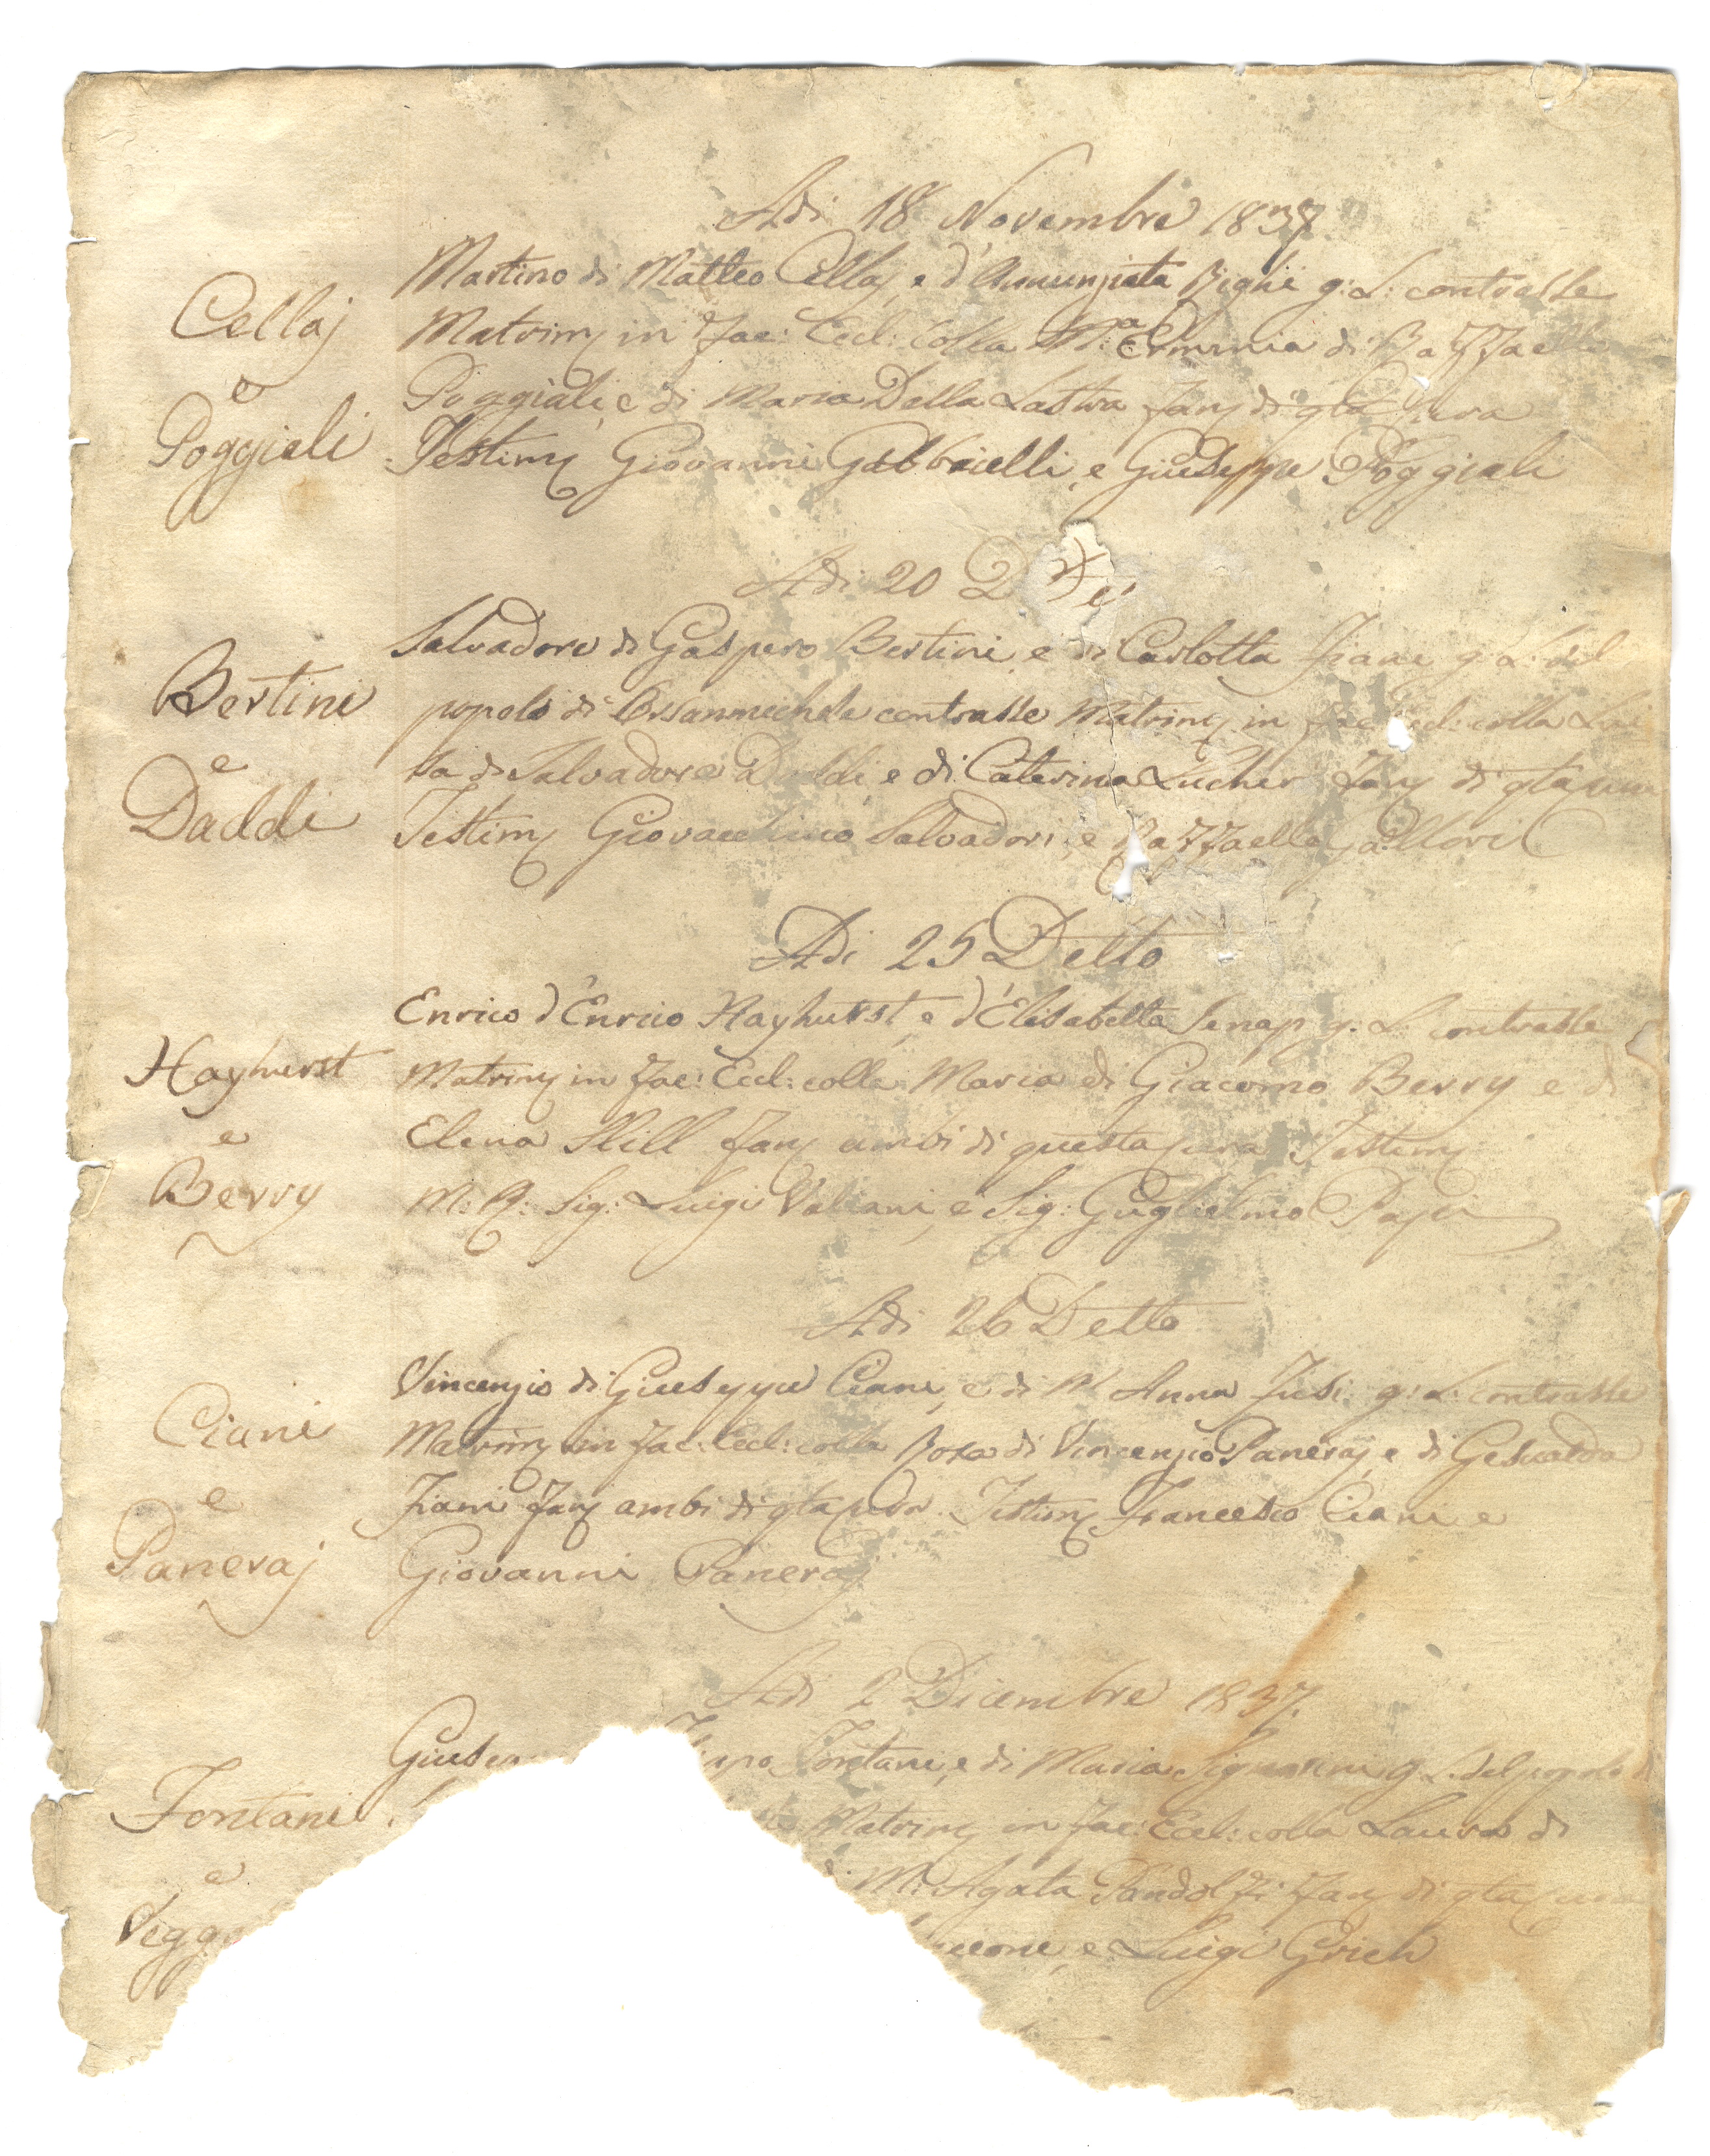 Adi 18 Novembre 1837.
Cellaj
e
Poggiali
Martino di Matteo Cellaj, e d'Annunziata Righi g: L: contrasse
Matrim in Fac: Eccl: Colla Mª: Erminia di Raffaello
Poggiali, e di Maria Della Lastra Fan di qta Cura
Testim Giovanni Gabbrielli, e Giuseppe Poggiali
Adi 20 D
Bertini
e
Daddi
Salvadore di Gaspero Bertini, e di Carlotta g: L: del
popolo di Orsanmichele contrasse Matrim in Fac: Eccl: colla Lui
sa di Salvadore Daddi e di Caterina Lucher Fan di qta cura
Testim Giovacchino Salvadori, e Raffaello Gallori
Adi 25 Detto
Hayhurst
e
Berry
Enrico d'Enrico Hayhurst, e d'Elisabetta Senap g: L: contrasse
Matrim in Fac: Eccl: colla Maria di Giacomo Berry e di
Elena Hill Fan ambi di questa cura Testim
M: R: Sig: Luigi Valiani, e Sig: Guglielmo Papi
Adi 26 Detto
Ciani
e
Paneraj
Vincenzio di Giuseppe Ciani, e di M. Anna Fusi g: L: contrasse
Matrim in Fac: Eccl: colla Rosa di Vincenzio Paneraj, e di Gesualda
Fan ambi di qta cura. Testim Francesco Ciani e
Giovanni Paneraj
Adi 2 Dicembre 1837.
Fontani
e
Vegg
Giusep ippo Fontani, e di Maria Signorini g: L: del popolo di
Matrim in Fac: Eccl: colla Laura di
di M: Agata Pandolfi Fan di qta cura
cione, e Luigi Grich